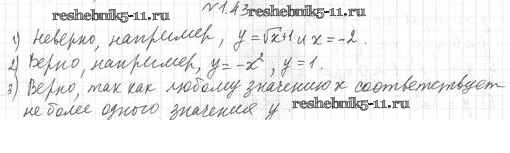 reshebnik5-11.ru
№1.43 reshebnik5-11.ru
1) Неверно, например, y=√x+1 и x=-2.
2) Верно, например, y=-x², y=1.
3) Верно, так как любому значению x соответствует
не более одного значения y. reshebnik5-11.ru